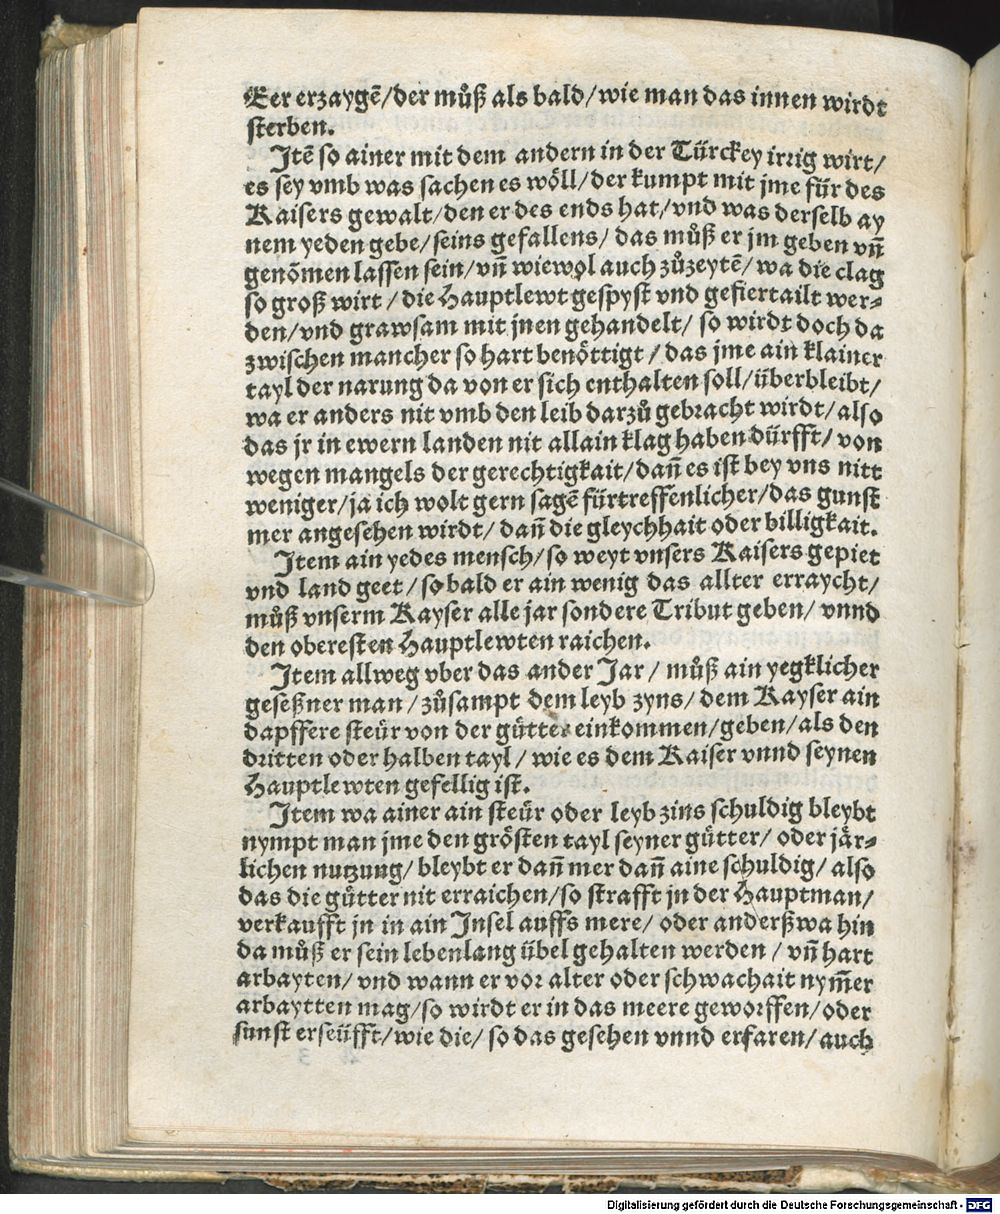 Eer erzaygẽ/der můß als bald/wie man das innen wirdt
sterben.
Jtẽ so ainer mit dem andern in der Türckey irrig wirt/
es sey vmb was sachen es wöll/der kumpt mit jme für des
Kaisers gewalt/den er des ends hat/vnd was derselb ay
nem yeden gebe/seins gefallens/ das můß er jm geben vñ
genõmen lassen sein/vñ wiewol auch zůzeytẽ/wa die clag
so groß wirt/die Hauptlewt gespyst vnd gefiertailt wer⸗
den/vnd grawsam mit jnen gehandelt/ so wirdt doch da
zwischen mancher so hart benöttigt/das jme ain klainer
tayl der narung da von er sich enthalten soll/überbleibt/
wa er anders nit vmb den leib darzů gebracht wirdt/also
das jr in ewern landen nit allain klag haben dürfft/von
wegen mangels der gerechtigkait/dañ es ist bey vns nitt
weniger/ja ich wolt gern sagẽ fürtreffenlicher/das gunst
mer angesehen wirdt/dañ die gleychhait oder billigkait.
Jtem ain yedes mensch/so weyt vnsers Kaisers gepiet
vnd land geet/so bald er ain wenig das allter erraycht/
můß vnserm Kayser alle jar sondere Tribut geben/ vnnd
den oberesten Hauptlewten raichen.
Jtem allweg vber das ander Jar/ můß ain yegklicher
geseßner man/zůsampt dem leyb zyns/dem Kayser ain
dapffere steür von der gütter einkommen/geben/als den
dritten oder halben tayl/wie es dem Kaiser vnnd seynen
Hauptlewten gefellig ist.
Jtem wa ainer ain steür oder leyb zins schuldig bleybt
nympt man jme den grösten tayl seyner gütter/oder jär⸗
lichen nutzung/bleybt er dañ mer dañ aine schuldig/also
das die gütter nit erraichen/so strafft jn der Hauptman/
verkaufft jn in ain Jnsel auffs mere/oder anderßwa hin
da můß er sein lebenlang übel gehalten werden/vñ hart
arbayten/vnd wann er vor alter oder schwachait nym̃er
arbaytten mag/so wirdt er in das meere geworffen/oder
sunst erseüfft/wie die/so das gesehen vnnd erfaren/auch
Digitalisierung gefördert durch die Deutsche Forschungsgemeinschaft - DFG